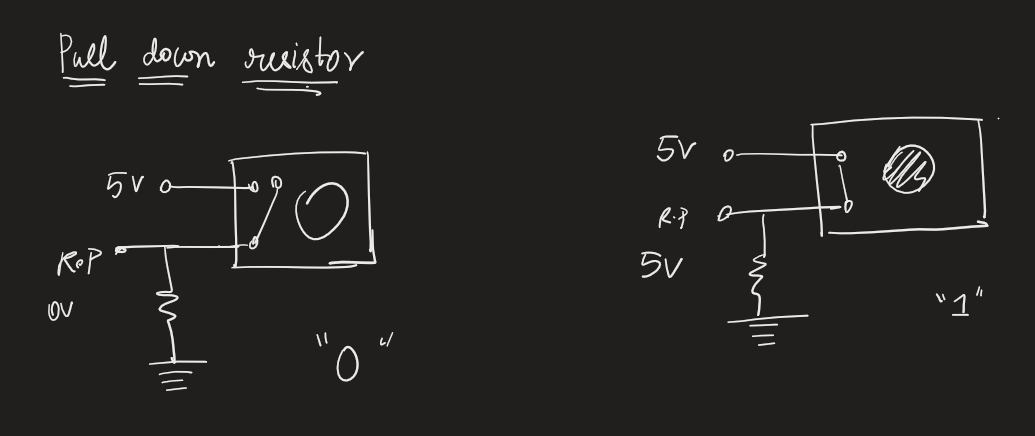 Pull down resistor
5V
R.P
0V
"0"
5V
R.P
5V
"1"